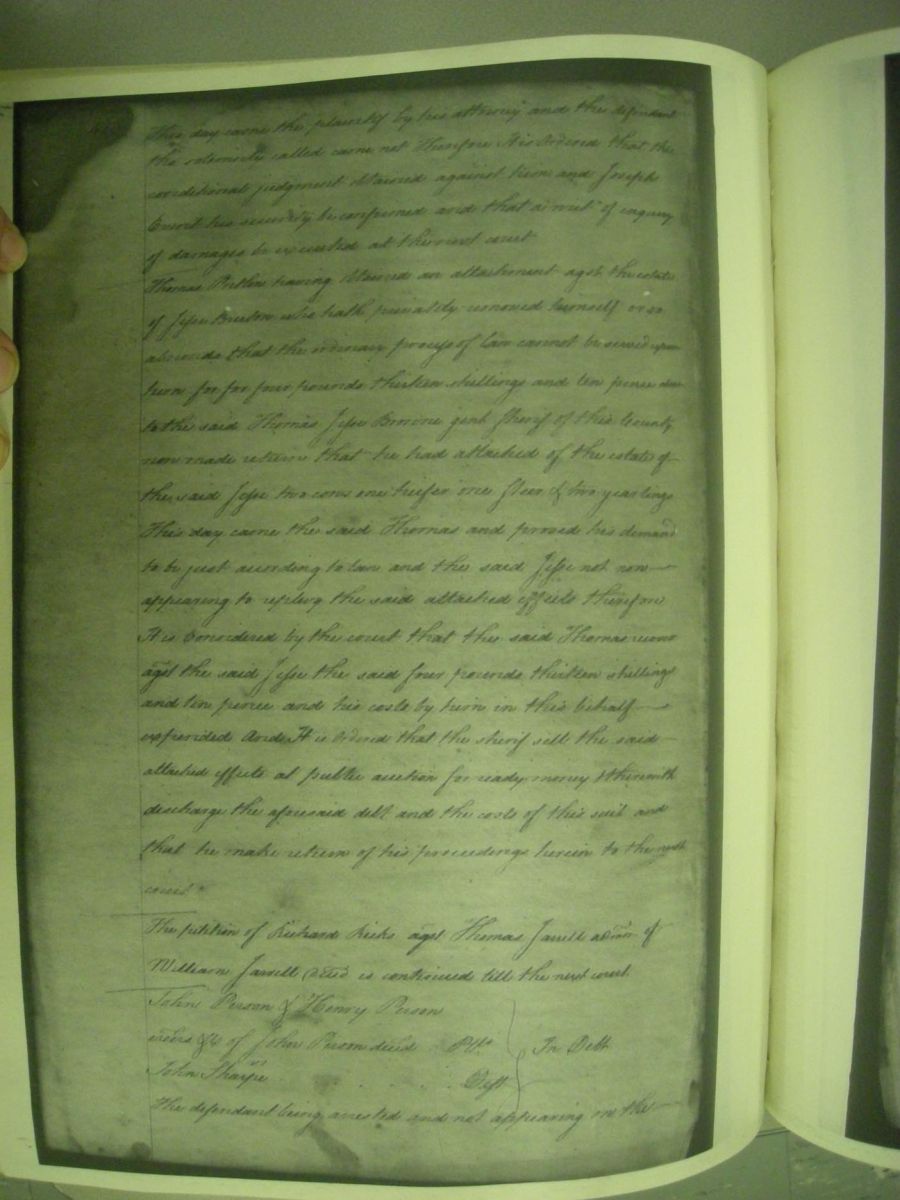 This day came the plaintif by his attorney and the defendant
tho solemnly called came not Therefore It is Ordered that the
conditional judgment obtained against him and Joseph
his security be confirmed and that a writ of enquiry
of damages be executed at the next court
Thomas having obtained an attachment agst the estate
of Jesse who hath privately removed himself or so
absconds that the ordinary process of law cannot be served upon
him for for four pounds thirteen shillings and ten pence due
to the said Thomas Jesse Browne gent Sherif of this County
now made return that he had attached of the estate of
the said Jesse two cows one heifer one steer & two yearlings
This day came the said Thomas and proved his demand
to be just according to law and the said Jesse not now
appearing to replevy the said attached effects therefore
It is Considered by the court that the said Thomas recover
agst the said Jesse the said four pounds thirteen shillings
and ten pence and his costs by him in this behalf
expended And It is Ordered that the sherif sell the said
attached effects at public auction for ready money & therewith
discharge the aforesaid debt and the costs of this suit and
that he make return of his proceedings herein to the next
court
The petition of Richard Ricks agst Thomas Jarrell admr of
William Jarrell decd is continued till the next court
John Person & Henry Person
exors &c of John Person decd Plts
In Debt
John Sharpe Deft
The defendant being arrested and not appearing on the